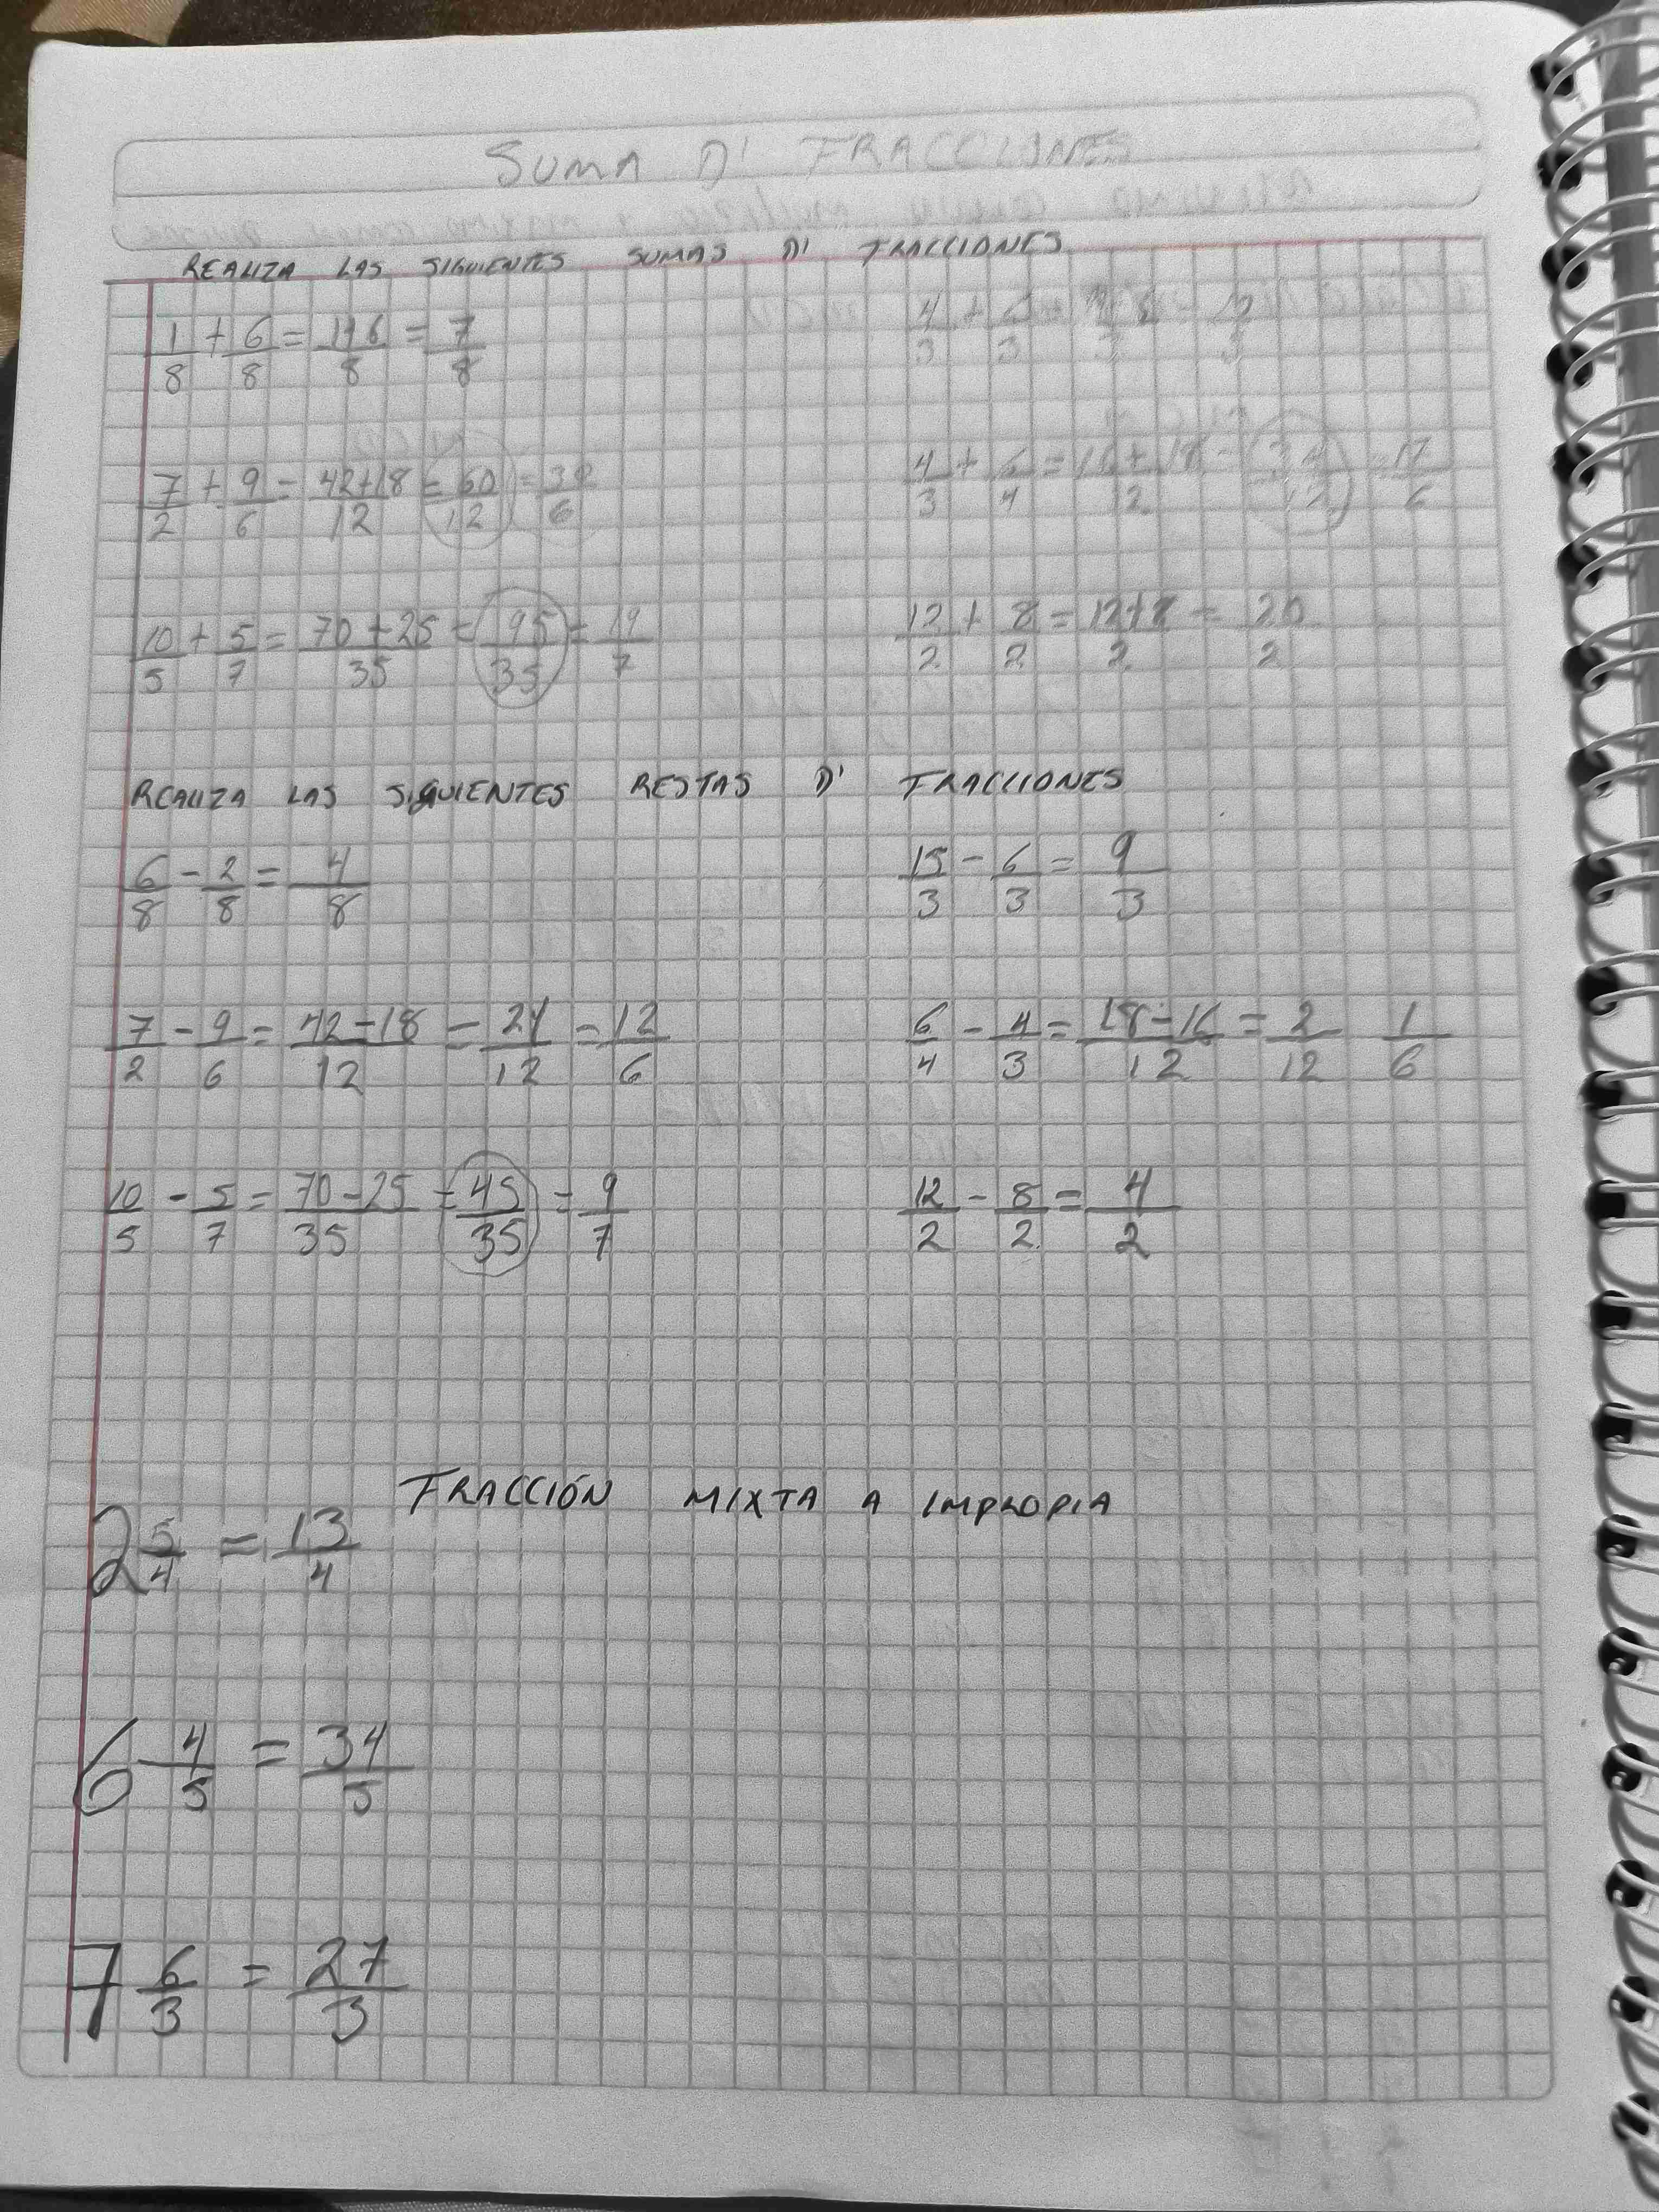 SUMA D' FRACCIONES
REALIZA LAS SIGUIENTES SUMAS D' FRACCIONES
1/8 + 6/8 = 1+6/8 = 7/8
4/3 + 6/3 =
7/2 + 9/6 = 42+18/12 = 60/12 = 30/6
4/3 + 6/4 = 16+18/12 = 34/12 = 17/6
10/5 + 5/7 = 70+25/35 = 95/35 = 19/7
12/2 + 8/2 = 12+8/2 = 20/2
REALIZA LAS SIGUIENTES RESTAS D' FRACCIONES
6/8 - 2/8 = 4/8
15/3 - 6/3 = 9/3
7/2 - 9/6 = 42-18/12 = 24/12 = 12/6
6/4 - 4/3 = 18-16/12 = 2/12 1/6
10/5 - 5/7 = 70-25/35 = 45/35 = 9/7
12/2 - 8/2 = 4/2
FRACCIÓN MIXTA A IMPROPIA
2 5/4 = 13/4
6 4/5 = 34/5
7 6/3 = 27/3